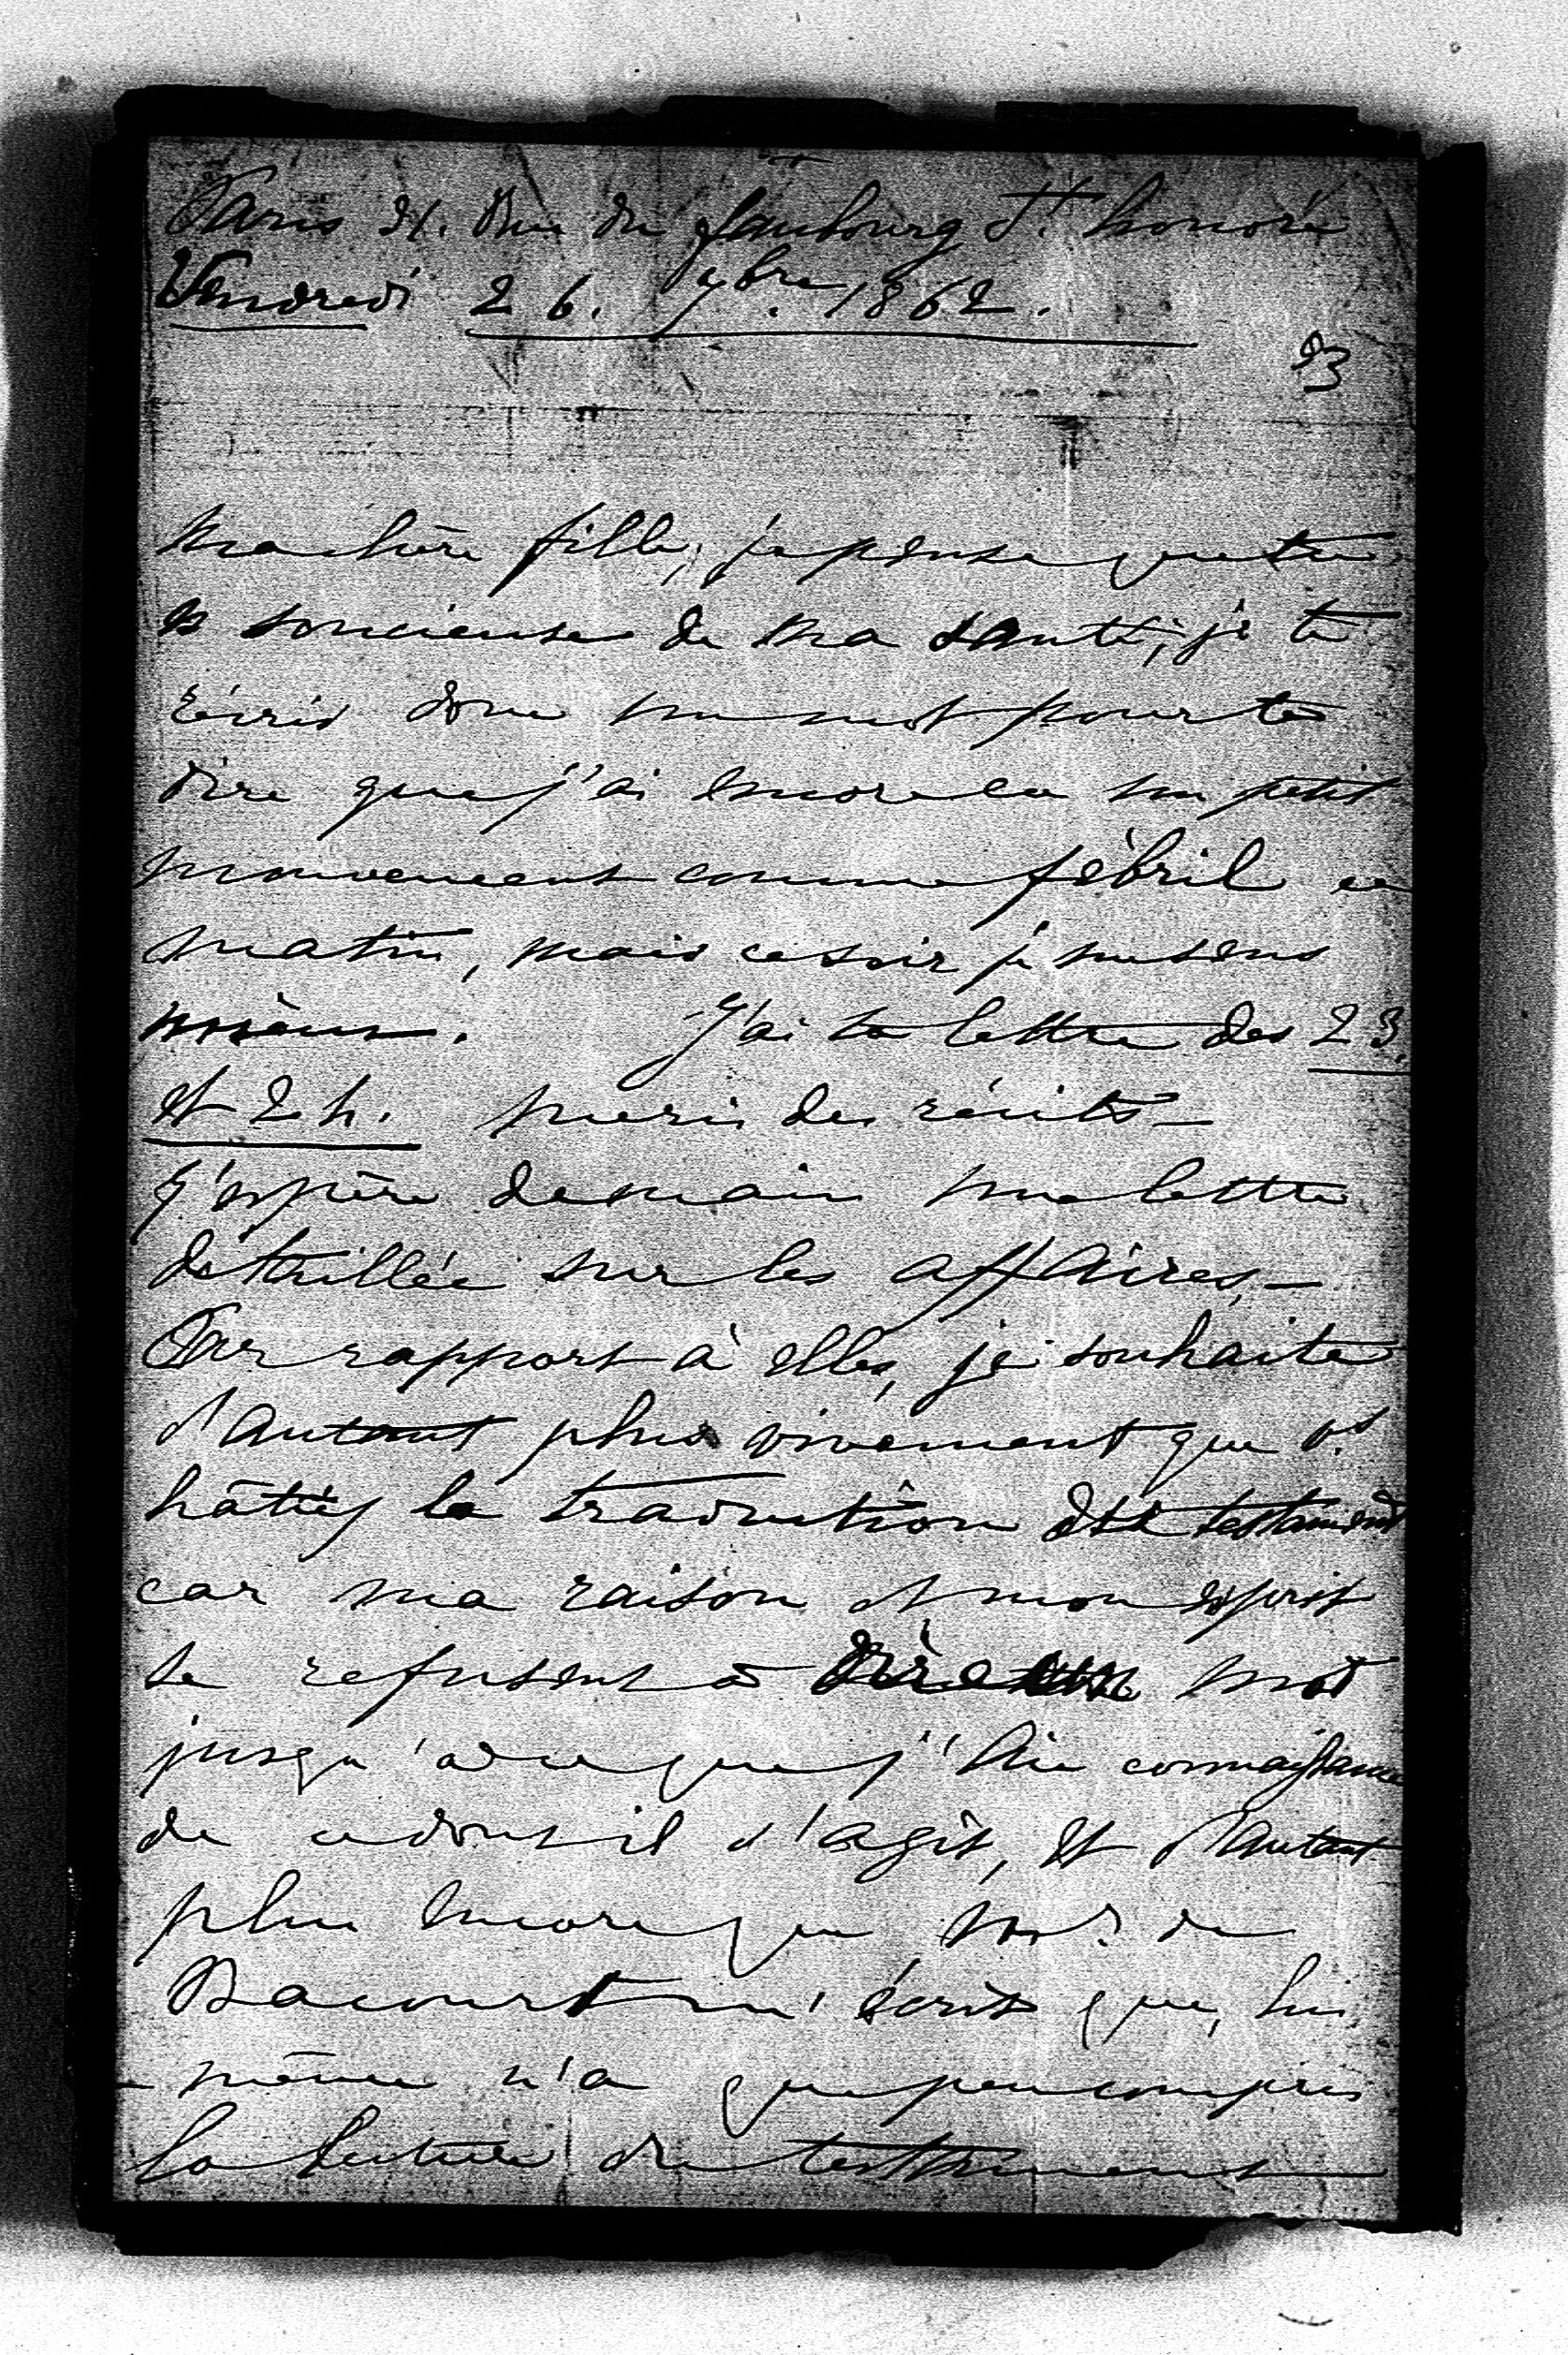 Paris 31. Rue du faubourg St. honoré
Vendredi 26. 7bre. 1862.
93
Ma chère fille, je pense que tu
es soucieuse de ma santé, je te
récris donc un mot pour te
dire que j'ai encore eu un petit
mouvement comme fébril ce
matin, mais ce soir je me sens
mieux. J'ai ta lettre des 23.
et 24. merci des récits —
J'espère demain une lettre
détaillée sur les affaires, —
Par rapport à elles, je souhaite
d'autant plus vivement que vs
hâtiez la traduction des testament
car ma raison et mon esprit
se refusent à dire un mot
jusqu'à ce que j'aie connaissance
de ce dont il s'agit, et d'autant
plus encore que Mr. de
Bacourt m'écrit que, lui
- même n'a que peu compris
la lecture du testament